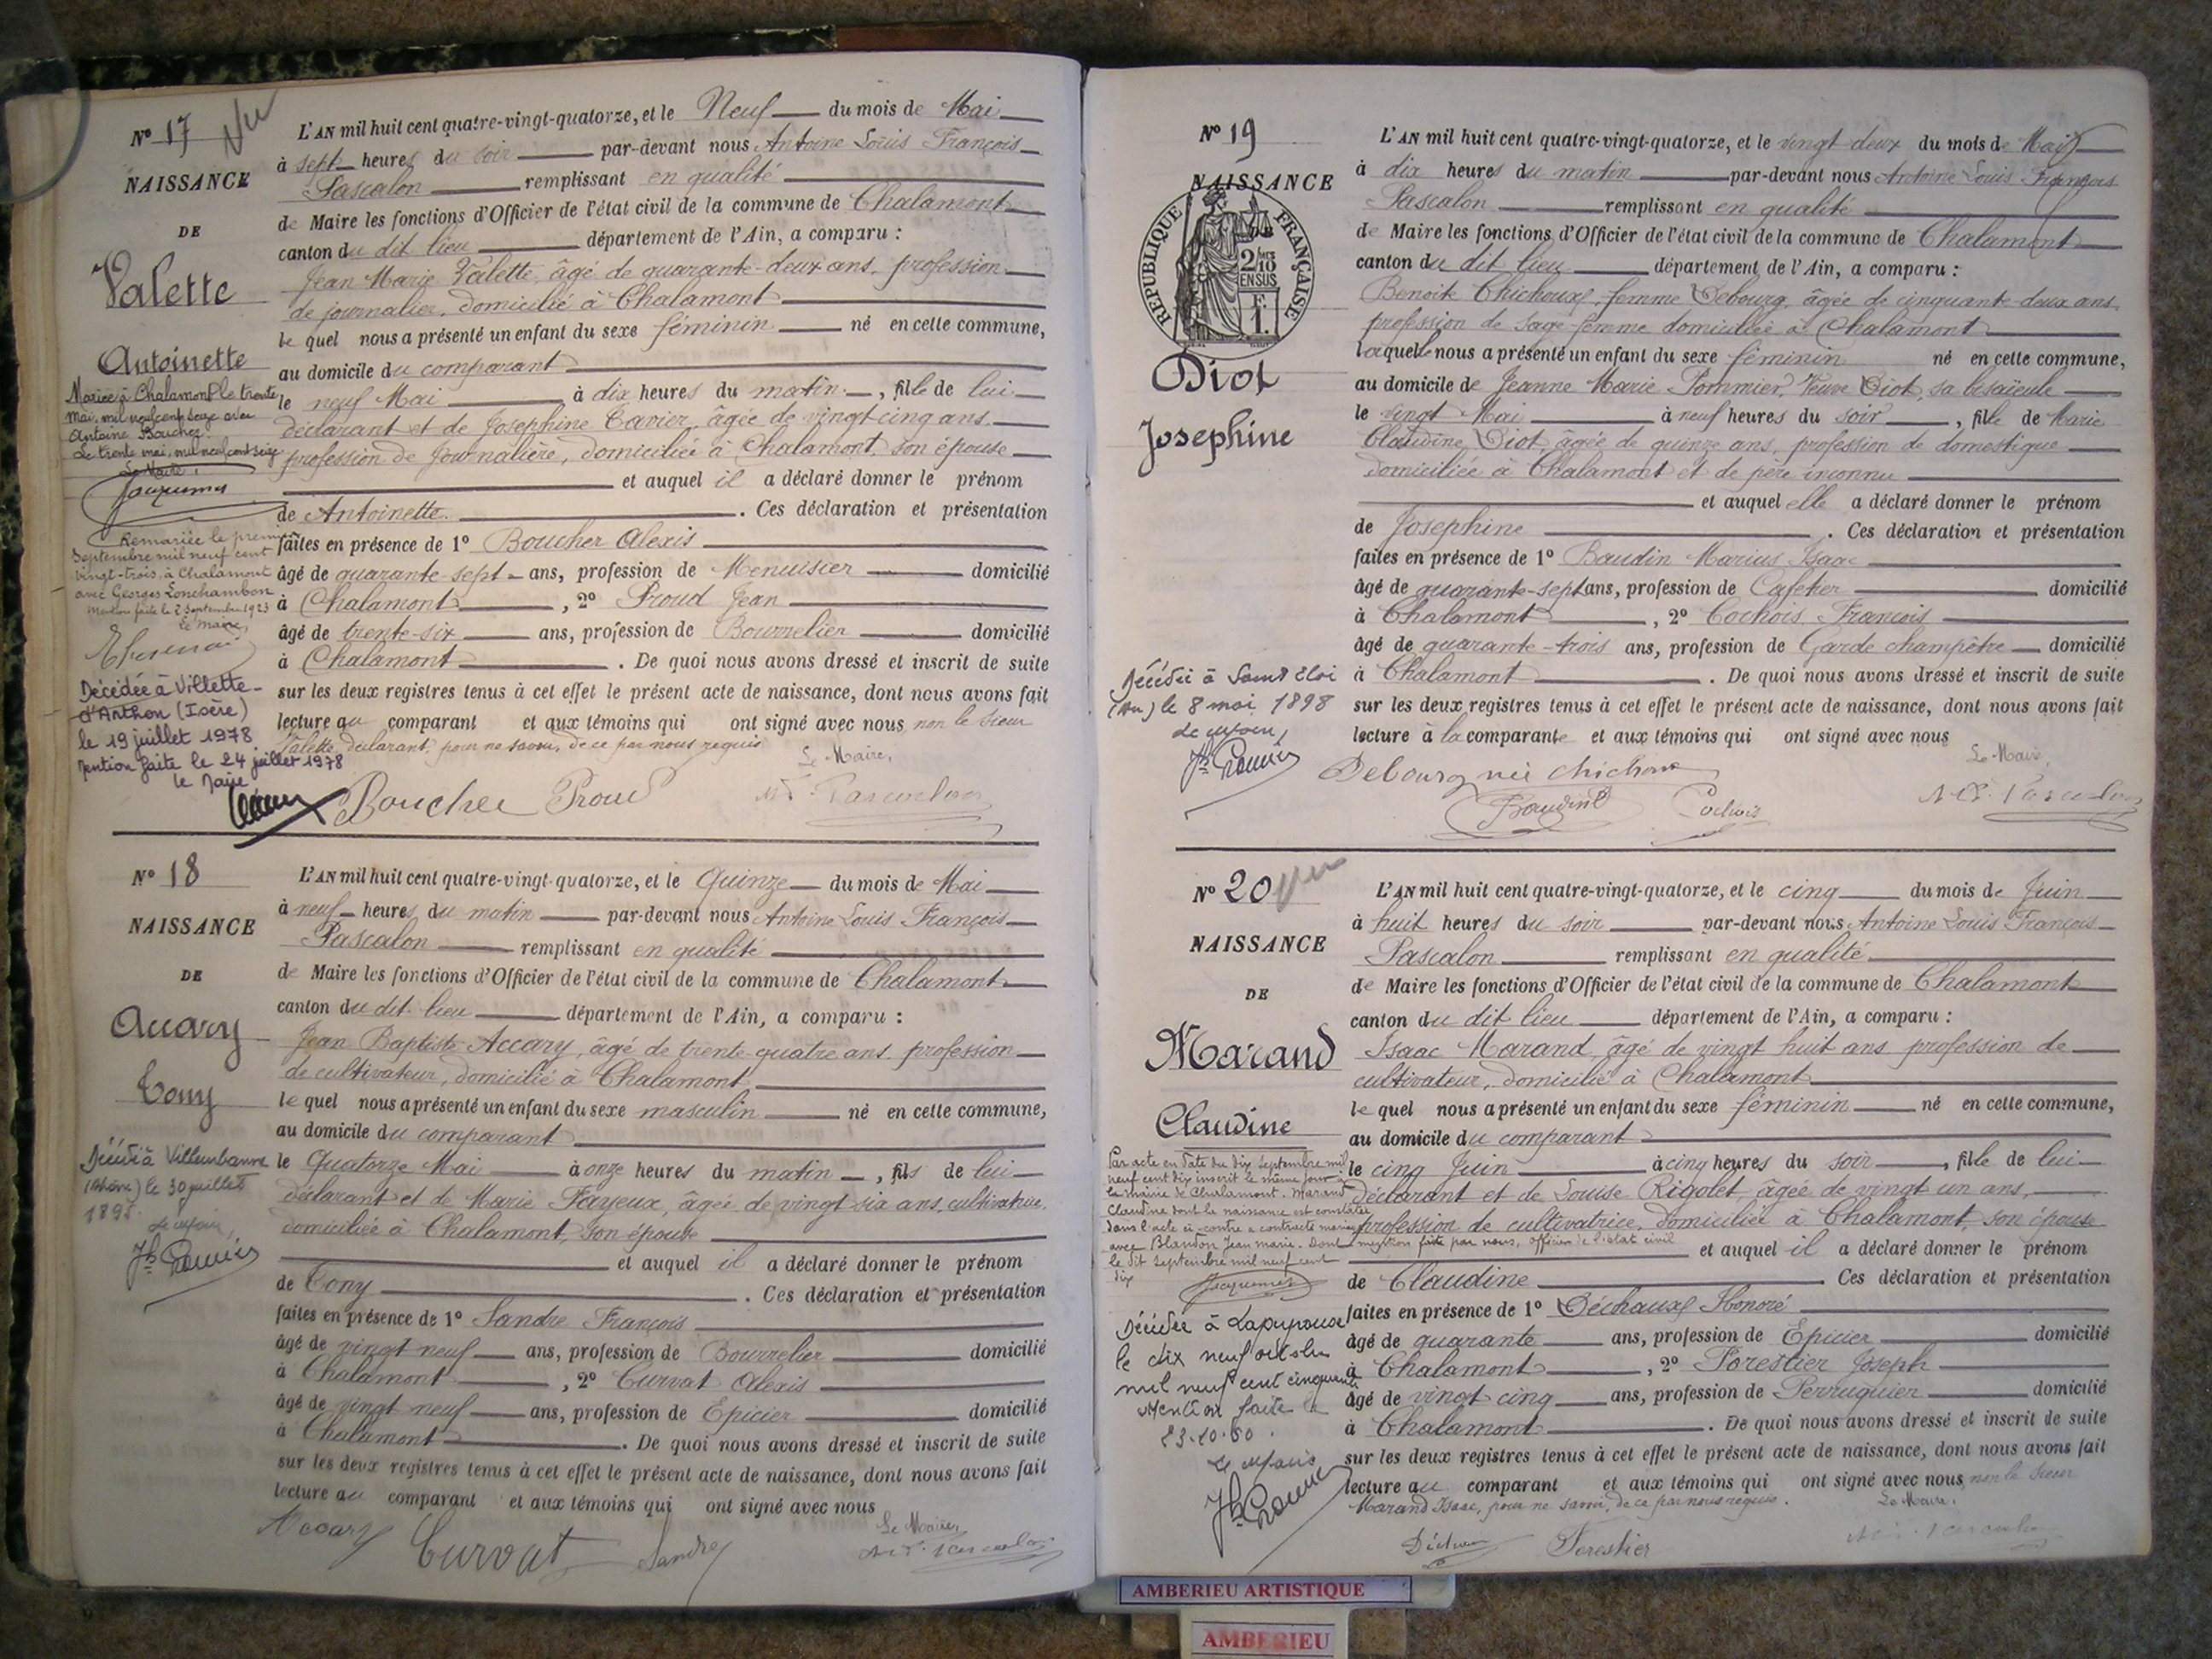 Nº 17 Vu
NAISSANCE
DE
Valette
Antoinette
Mariée à Chalamont le trente
mai mil neuf cent seize avec
Antoine Boucher.
Le trente mai mil neuf cent seize
Le Maire,
Jacquemet
Remariée le premier
Septembre mil neuf cent
vingt-trois à Chalamont
avec Georges Lonchambon
Mention faite le 2 Septembre 1923
Le Maire,
Décédée à Villette-
d'Anthon (Isère)
le 19 juillet 1978
Mention faite le 24 juillet 1978
le Maire
L'AN mil huit cent quatre-vingt-quatorze, et le Neuf du mois de Mai
à sept heures du soir par-devant nous Antoine Louis François
Pascalon remplissant en qualité
de Maire les fonctions d'Officier de l'état civil de la commune de Chalamont
canton du dit lieu département de l'Ain, a comparu :
Jean Marie Valette, âgé de quarante-deux ans, profession
de journalier, domicilié à Chalamont
le quel nous a présenté un enfant du sexe féminin né en cette commune,
au domicile du comparant
le neuf Mai à dix heures du matin, fille de lui
déclarant et de Josephine Cavier, âgée de vingt cinq ans
profession de journalière, domiciliée à Chalamont, son épouse
et auquel il a déclaré donner le prénom
de Antoinette. Ces déclaration et présentation
faites en présence de 1º Boucher Alexis
âgé de quarante-sept ans, profession de Menuisier domicilié
à Chalamont, 2º Proud Jean
âgé de trente-six ans, profession de Bourrelier domicilié
à Chalamont. De quoi nous avons dressé et inscrit de suite
sur les deux registres tenus à cet effet le présent acte de naissance, dont nous avons fait
lecture au comparant et aux témoins qui ont signé avec nous non le sieur
Valette, déclarant, pour ne savoir, de ce par nous requis
Le Maire,
Boucher Proud A.L.F. Pascalon
Nº 18
NAISSANCE
DE
Accary
Tony
Décédé à Villeurbanne
(Rhône) le 30 juillet
1895.
Le Maire,
L'AN mil huit cent quatre-vingt-quatorze, et le Quinze du mois de Mai
à neuf heures du matin par-devant nous Antoine Louis François
Pascalon remplissant en qualité
de Maire les fonctions d'Officier de l'état civil de la commune de Chalamont
canton du dit lieu département de l'Ain, a comparu :
Jean Baptiste Accary, âgé de trente-quatre ans, profession
de cultivateur, domicilié à Chalamont
le quel nous a présenté un enfant du sexe masculin né en cette commune,
au domicile du comparant
le Quatorze Mai à onze heures du matin, fils de lui
déclarant et de Marie Fayeux, âgée de vingt six ans, cultivatrice,
domiciliée à Chalamont, son épouse
et auquel il a déclaré donner le prénom
de Tony. Ces déclaration et présentation
faites en présence de 1º Sandre François
âgé de vingt neuf ans, profession de Bourrelier domicilié
à Chalamont, 2º Curvat Alexis
âgé de vingt neuf ans, profession de Epicier domicilié
à Chalamont. De quoi nous avons dressé et inscrit de suite
sur les deux registres tenus à cet effet le présent acte de naissance, dont nous avons fait
lecture au comparant et aux témoins qui ont signé avec nous
Le Maire,
Accary Curvat Sandre A.L.F. Pascalon
Nº 19
NAISSANCE
RÉPUBLIQUE FRANÇAISE
2/10 EN SUS
1 F.
Diot
Josephine
Décédée à Saint Eloi
(Ain) le 8 mai 1898
Le Maire,
L'AN mil huit cent quatre-vingt-quatorze, et le vingt deux du mois de Mai
à dix heures du matin par-devant nous Antoine Louis François
Pascalon remplissant en qualité
de Maire les fonctions d'Officier de l'état civil de la commune de Chalamont
canton du dit lieu département de l'Ain, a comparu :
Benoite Chichoux, femme Debourg, âgée de cinquante-deux ans,
profession de sage-femme domiciliée à Chalamont
laquelle nous a présenté un enfant du sexe féminin né en cette commune,
au domicile de Jeanne Marie Pommier, Veuve Diot, sa bisaïeule
le vingt Mai à neuf heures du soir, fille de Marie
Claudine Diot, âgée de quinze ans, profession de domestique
domiciliée à Chalamont et de père inconnu
et auquel elle a déclaré donner le prénom
de Josephine. Ces déclaration et présentation
faites en présence de 1º Baudin Marius Isaac
âgé de quarante-sept ans, profession de Cafetier domicilié
à Chalamont, 2º Cochois François
âgé de quarante-trois ans, profession de Garde champêtre domicilié
à Chalamont. De quoi nous avons dressé et inscrit de suite
sur les deux registres tenus à cet effet le présent acte de naissance, dont nous avons fait
lecture à la comparante et aux témoins qui ont signé avec nous
Le Maire,
Debourg née Chichoux
Baudin Cochois A.L.F. Pascalon
Nº 20 Vu
NAISSANCE
DE
Marand
Claudine
Par acte en date du dix Septembre mil
neuf cent dix inscrit le même jour à
la mairie de Chalamont, Marand
Claudine dont la naissance est constatée
dans l'acte ci-contre a contracté mariage
avec Blandon Jean Marie. Dont mention faite par nous, officier de l'état civil
le dit Septembre mil neuf cent
dix
Jacquemet
Décédée à Lapeyrouse
le dix neuf octobre
mil neuf cent cinquante
Mention faite le
23.10.50.
Le Maire
L'AN mil huit cent quatre-vingt-quatorze, et le cinq du mois de Juin
à huit heures du soir par-devant nous Antoine Louis François
Pascalon remplissant en qualité
de Maire les fonctions d'Officier de l'état civil de la commune de Chalamont
canton du dit lieu département de l'Ain, a comparu :
Isaac Marand, âgé de vingt huit ans profession de
cultivateur, domicilié à Chalamont
le quel nous a présenté un enfant du sexe féminin né en cette commune,
au domicile du comparant
le cinq Juin à cinq heures du soir, fille de lui
déclarant et de Louise Rigolet, âgée de vingt un ans,
profession de cultivatrice, domiciliée à Chalamont, son épouse
et auquel il a déclaré donner le prénom
de Claudine Ces déclaration et présentation
faites en présence de 1º Déchaux Honoré
âgé de quarante ans, profession de Epicier domicilié
à Chalamont, 2º Forestier Joseph
âgé de vingt cinq ans, profession de Perruquier domicilié
à Chalamont. De quoi nous avons dressé et inscrit de suite
sur les deux registres tenus à cet effet le présent acte de naissance, dont nous avons fait
lecture au comparant et aux témoins qui ont signé avec nous, non le sieur
Marand Isaac, pour ne savoir, de ce par nous requis.
Le Maire.
Déchaux Forestier A.L.F. Pascalon
AMBERIEU ARTISTIQUE
AMBERIEU